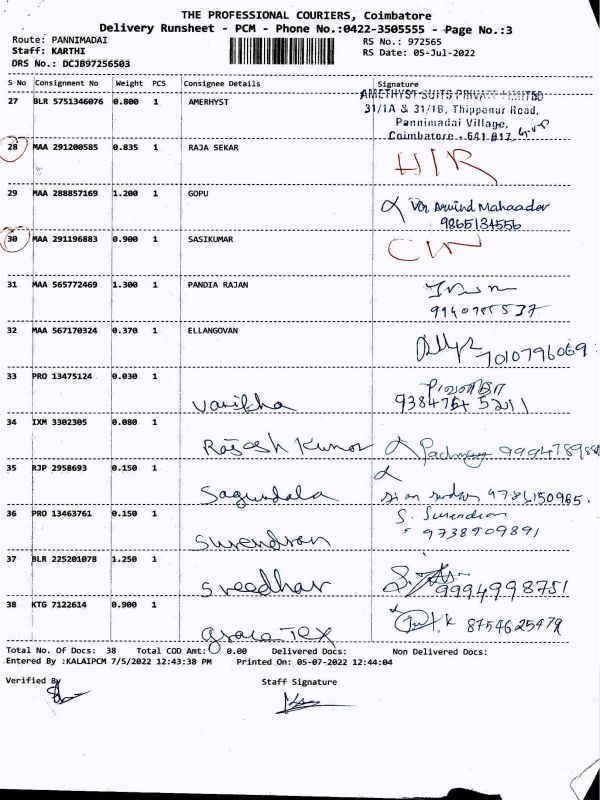 THE PROFESSIONAL COURIERS, Coimbatore
Delivery Runsheet - PCM - Phone No.:0422-3505555 - Page No.:3
Route: PANNIMADAI
RS No.: 972565
Staff: KARTHI
RS Date: 05-Jul-2022
DRS No.: DCJB97256503
S No Consignment No Weight PCS Consignee Details Signature
27 BLR 5751346076 0.800 1 AMERHYST
AMETHYST SUITS PRIVATE LIMITED
31/1A & 31/1B, Thippanur Road,
Pannimadai Village,
Coimbatore - 641 017.
28 MAA 291200585 0.835 1 RAJA SEKAR
29 MAA 288857169 1.200 1 GOPU
Arvind Mahaader
9865134556
30 MAA 291196883 0.900 1 SASIKUMAR
31 MAA 565772469 1.300 1 PANDIA RAJAN
32 MAA 567170324 0.370 1 ELLANGOVAN
7010796069
33 PRO 13475124 0.030 1
34 IXM 3302305 0.080 1
Rajesh Kumar
35 RJP 2958693 0.150 1
9786150965.
36 PRO 13463761 0.150 1
Surendran
S. Surendran
9738909891
37 BLR 225201078 1.250 1
Sreedhar
9994998751
38 KTG 7122614 0.900 1
Grace Tex
8754625479
Total No. Of Docs: 38 Total COD Amt: 0.00 Delivered Docs: Non Delivered Docs:
Entered By :KALAIPCM 7/5/2022 12:43:38 PM Printed On: 05-07-2022 12:44:04
Verified By
Staff Signature